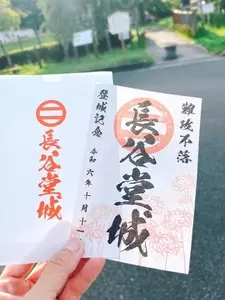 長谷堂城
難攻不落
長谷堂城
登城記念
令和六年十月十一